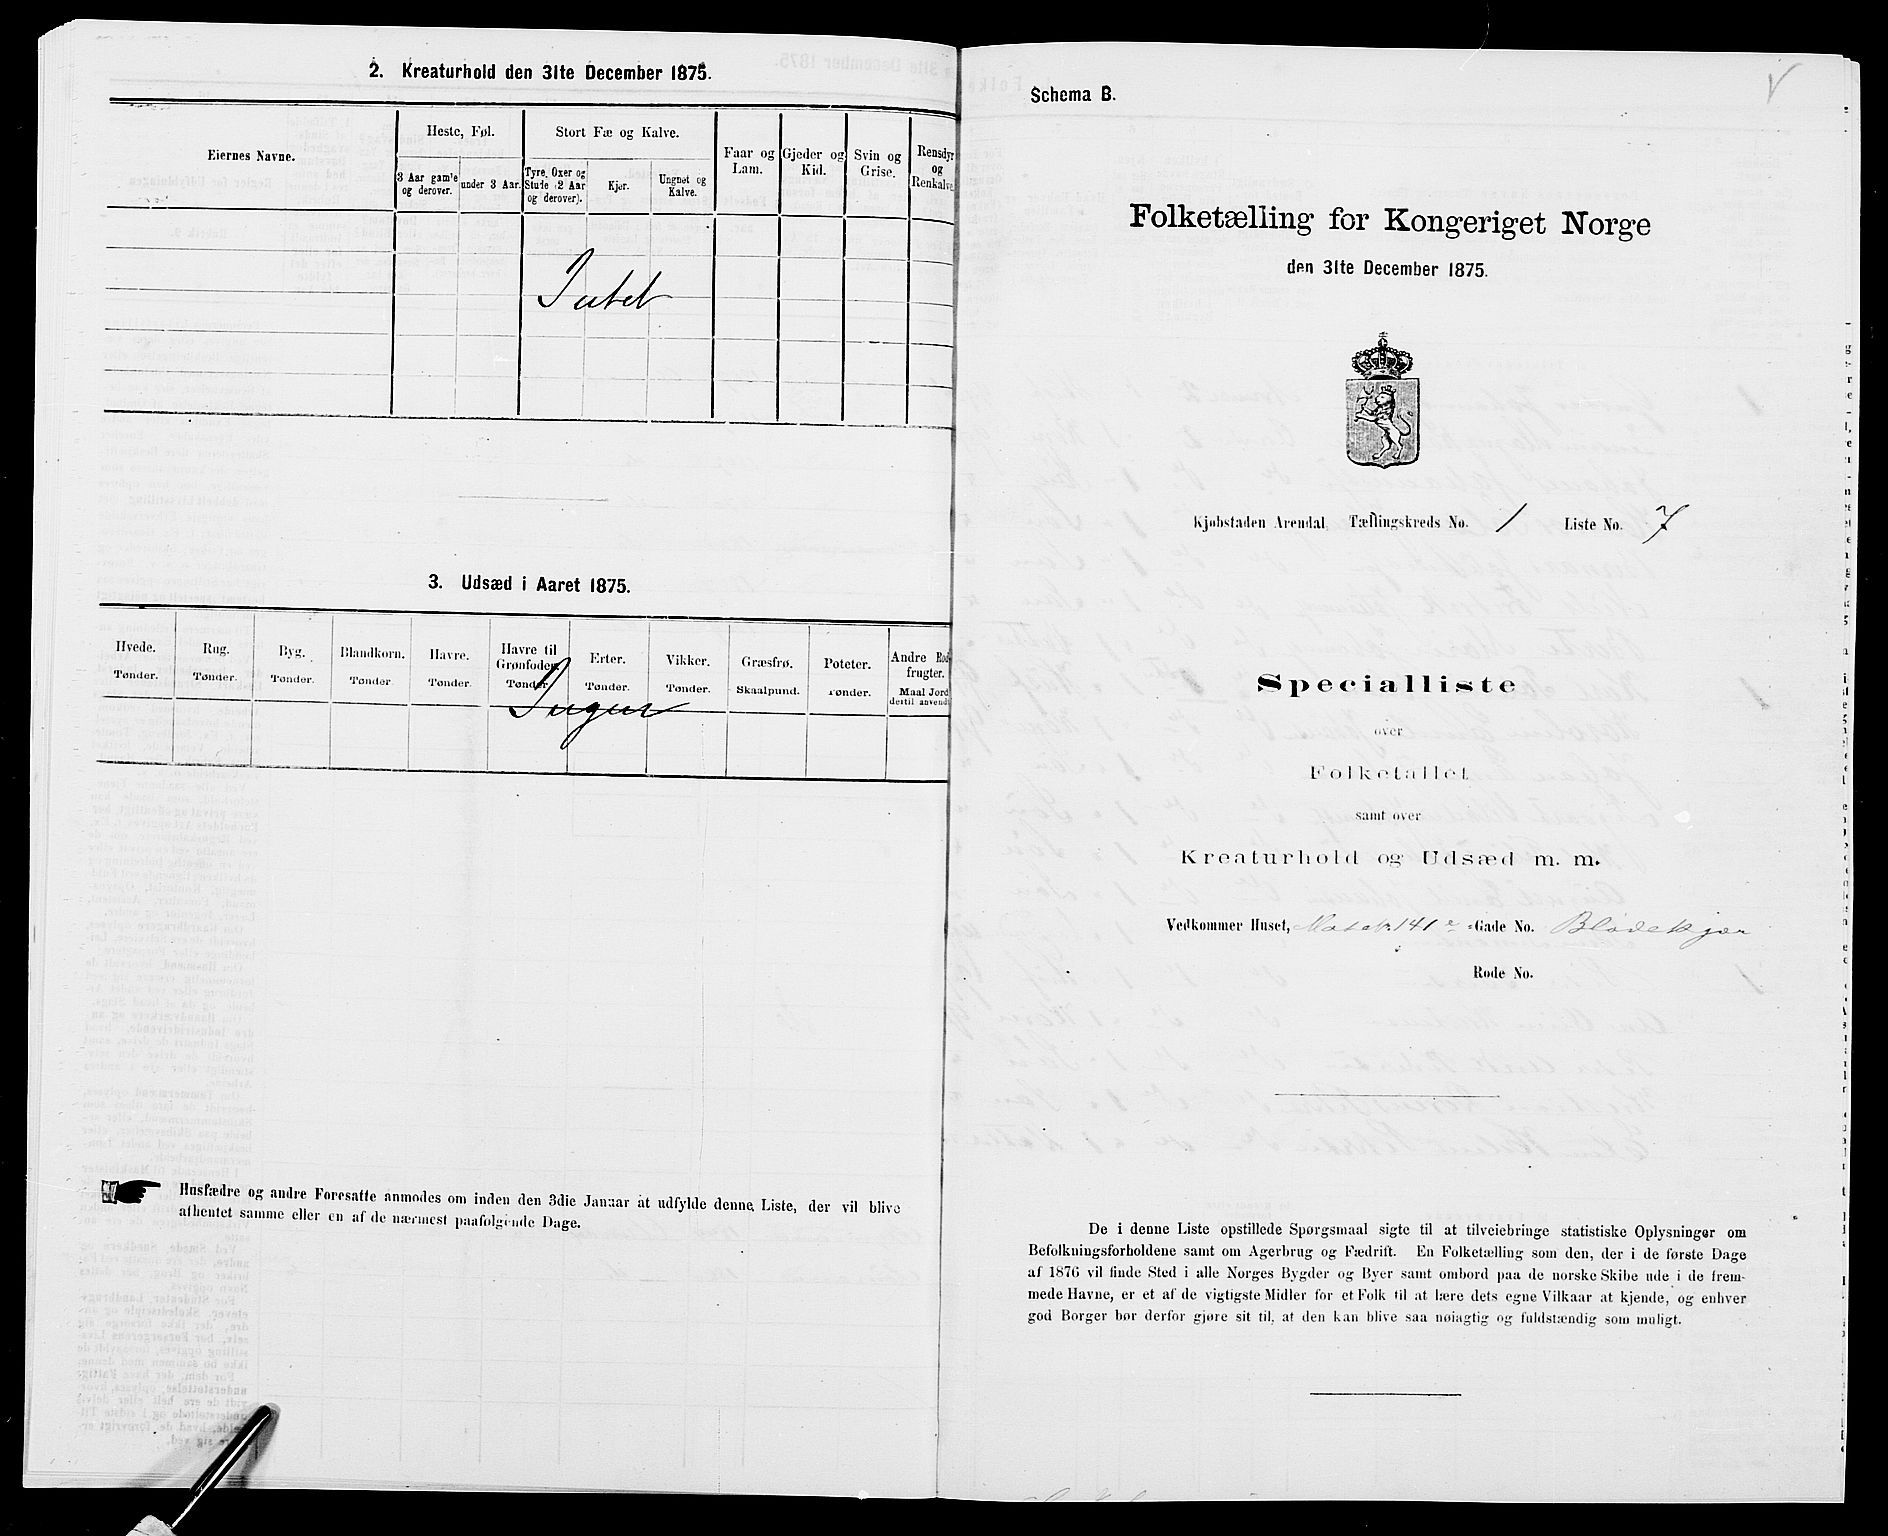 2. Kreaturhold den 31te December 1875.
Eiernes Navne.
Heste, Føl.
3 Aar gamle og derover.
under 3 Aar.
Stort Fæ og Kalve.
Tyre, Oxer og Stude (2 Aar og derover).
Kjør.
Ungnet og Kalve.
Faar og Lam.
Gjeder og Kid.
Svin og Grise.
Rensdyr og Renkalve.
Intet
3. Udsæd i Aaret 1875.
Hvede. Tønder.
Rug. Tønder.
Byg. Tønder.
Blandkorn. Tønder.
Havre. Tønder.
Havre til Grønfoder. Tønder.
Erter. Tønder.
Vikker. Tønder.
Græsfrø. Skaalpund.
Poteter. Tønder.
Andre Rodfrugter. Maal Jord dertil anvendt
Ingen
Husfædre og andre Foresatte anmodes om inden den 3die Januar at udfylde denne Liste, der vil blive
afhentet samme eller en af de nærmest paafølgende Dage.
Schema B.
Folketælling for Kongeriget Norge
den 31te December 1875.
Kjøbstaden Arendal, Tællingskreds No. 1 Liste No. 7
Specialliste
over
Folketallet
samt over
Kreaturhold og Udsæd m. m.
Vedkommer Huset, Matr. 141 e Gade No. Blødekjær
Rode No.
De i denne Liste opstillede Spørgsmaal sigte til at tilveiebringe statistiske Oplysninger om
Befolkningsforholdene samt om Agerbrug og Fædrift. En Folketælling som den, der i de første Dage
af 1876 vil finde Sted i alle Norges Bygder og Byer samt ombord paa de norske Skibe ude i de frem-
mede Havne, er et af de vigtigste Midler for et Folk til at lære dets egne Vilkaar at kjende, og enhver
god Borger bør derfor gjøre sit til, at den kan blive saa nøiagtig og fuldstændig som muligt.